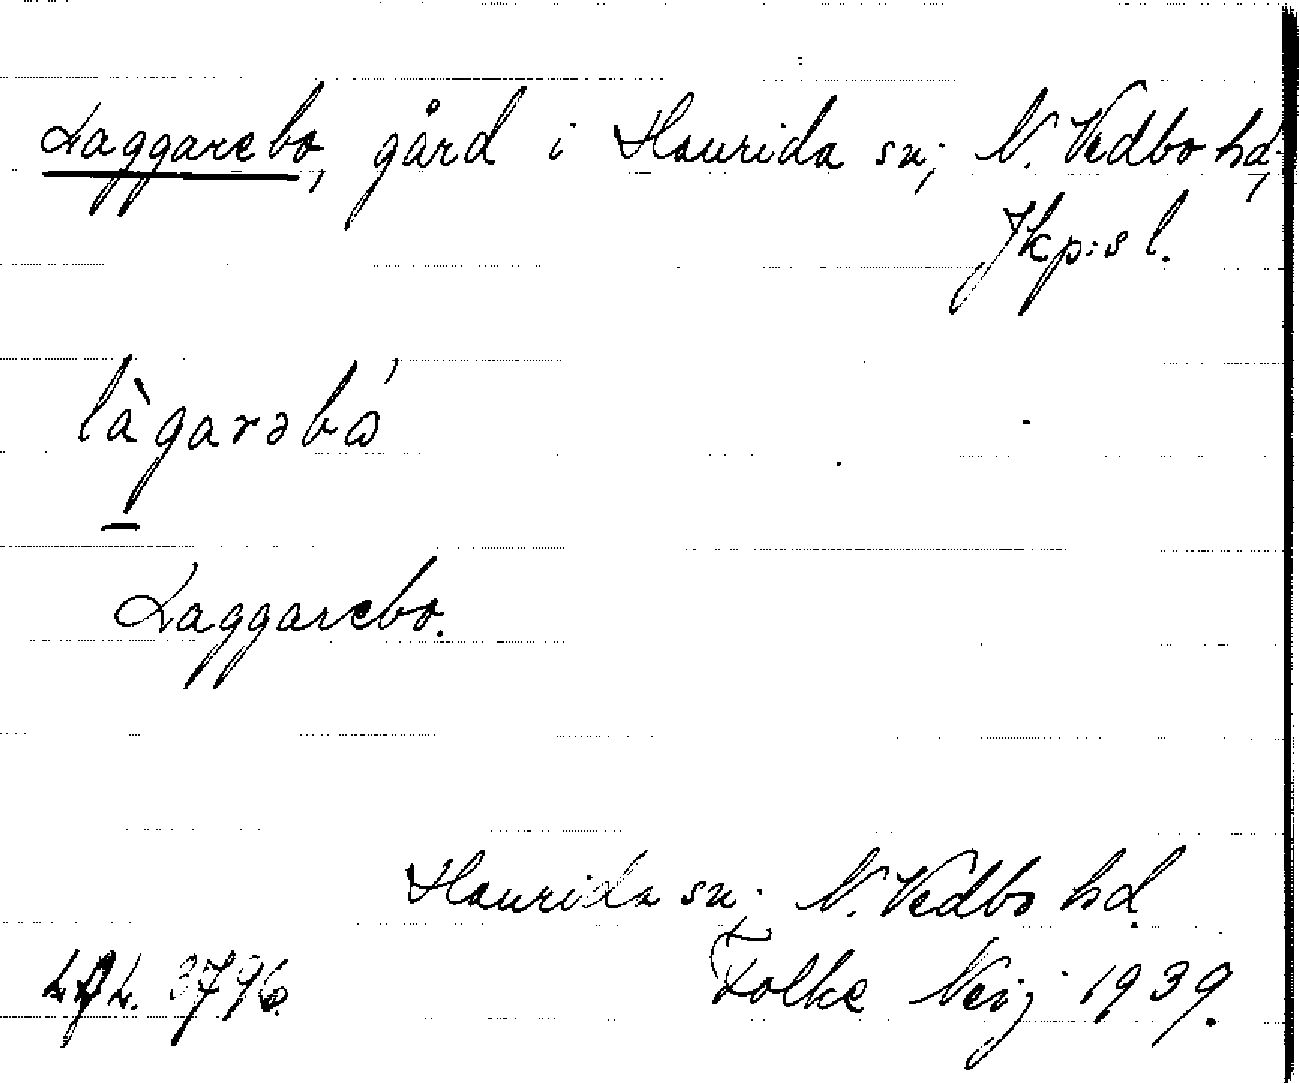 Laggarebo, gård i Haurida sn; N. Vedbo hd,
Jkp:s l.
làgarəbω´
Laggarebo.
Haurida sn; N. Vedbo hd.
3796. Folke Neij 1939.